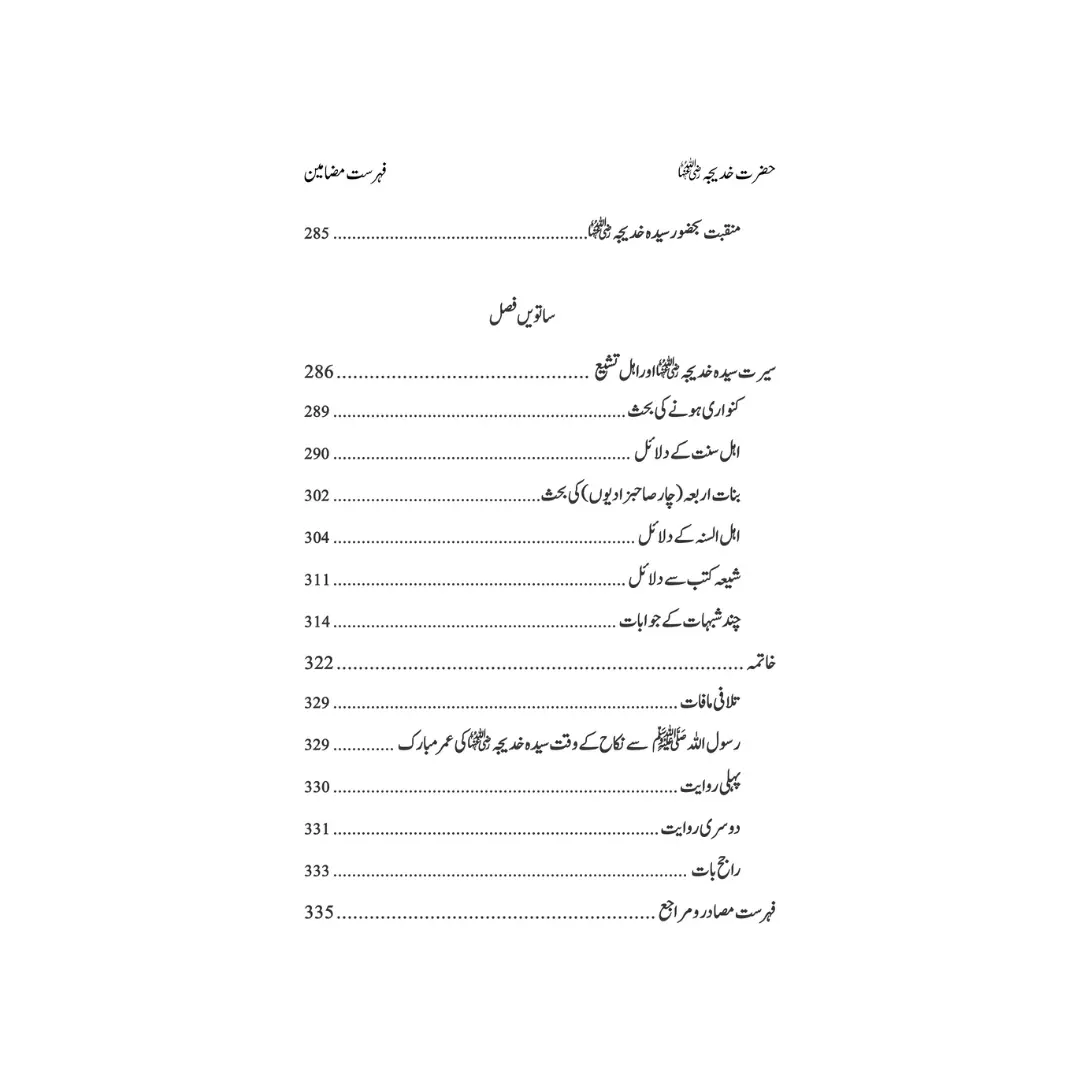 حضرت خدیجہ رضی اللہ عنہا فہرست مضامین
منقبت بحضور سیدہ خدیجہ رضی اللہ عنہا ........ 285
ساتویں فصل
سیرت سیدہ خدیجہ رضی اللہ عنہا اور اہل تشیع ........ 286
کنواری ہونے کی بحث ........ 289
اہل سنت کے دلائل ........ 290
بنات اربعہ (چار صاحبزادیوں) کی بحث ........ 302
اہل السنہ کے دلائل ........ 304
شیعہ کتب سے دلائل ........ 311
چند شبہات کے جوابات ........ 314
خاتمہ ........ 322
تلافی مافات ........ 329
رسول اللہ ﷺ سے نکاح کے وقت سیدہ خدیجہ رضی اللہ عنہا کی عمر مبارک ........ 329
پہلی روایت ........ 330
دوسری روایت ........ 331
راجح بات ........ 333
فہرست مصادر و مراجع ........ 335